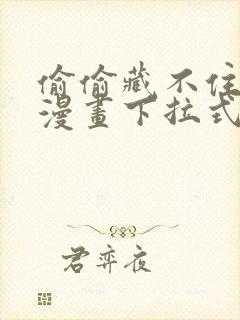 偷偷藏不住
漫畫下拉式
君弈夜